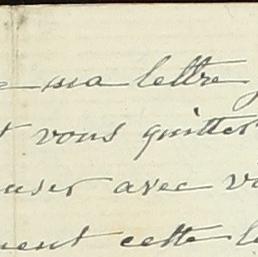 ma lettre
vous quitter
user avec v
ment cette le